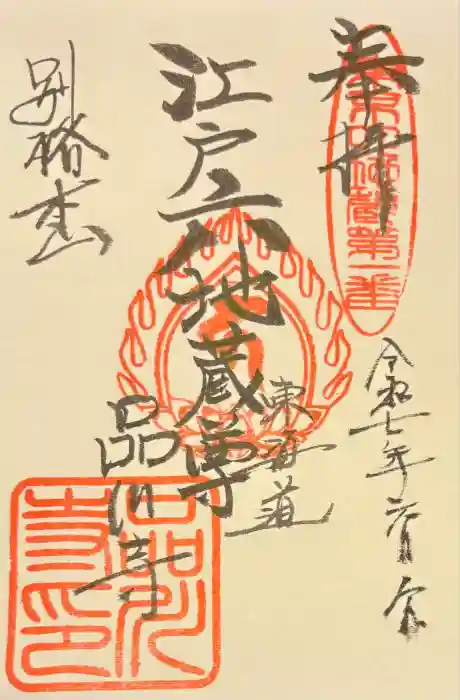 奉拝
江戸六地蔵第一番
令和七年六月六日
江戸六地蔵尊
東海道
品川寺
別格本山
品川寺印